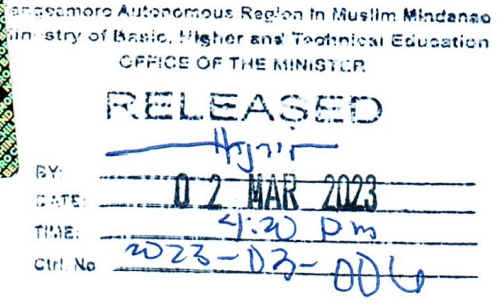 Bangsamoro Autonomous Region in Muslim Mindanao
Ministry of Basic, Higher and Technical Education
OFFICE OF THE MINISTER
RELEASED
BY:
DATE: 02 MAR 2023
TIME: 4:20 pm
Ctrl. No 2023-03-006